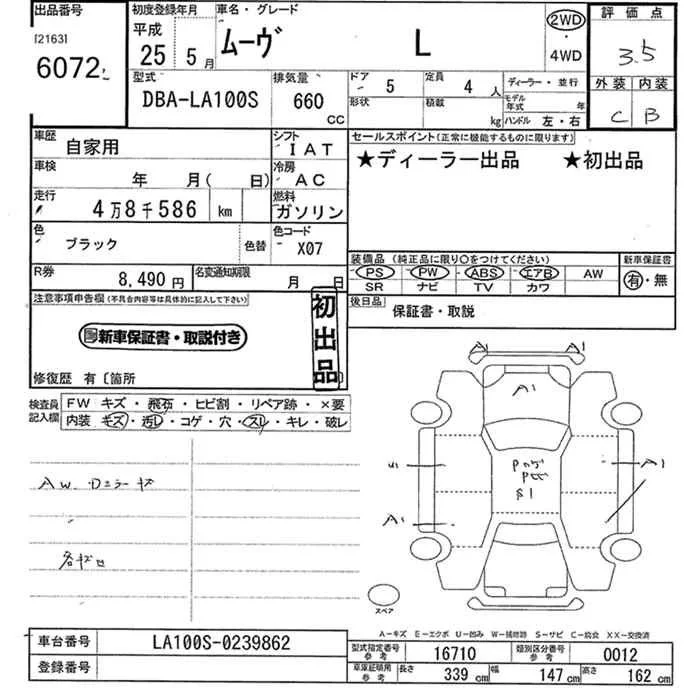 出品番号 初度登録年月 車名・グレード 評価点
[2163] 平成
6072 25 5月 ムーヴ L 2WD ・ 4WD 3.5
型式 排気量 ドア 5 定員 4人 ディーラー・並行 外装 内装
DBA-LA100S 660 CC 形状 積載 kg モデル年式 年 C B
ハンドル 左・右
車歴 自家用 シフト IAT セールスポイント(正常に機能するものに限ります)
車検 年 月( 日) 冷房 AC ★ディーラー出品 ★初出品
走行 4万8千586 km 燃料 ガソリン
色 ブラック 色替 色コード X07
装備品(純正品に限り○をつけてください) 新車保証書
PS PW ABS エアB AW 有・無
SR ナビ TV カワ
R券 8,490円 名変通知期限 月 日
後日品 保証書・取説
注意事項申告欄(不具合内容等は具体的に記入して下さい)
初出品
新車保証書・取説付き
修復歴 有〔箇所 〕
検査員記入欄 FW キズ・飛石・ヒビ割・リペア跡・×要
内装 キズ・汚レ・コゲ・穴・スレ・キレ・破レ
A1 A1
A1
S1
A1
A1
AW
スペア
A-キズ E-エクボ U-凹み W-補修跡 S-サビ C-腐食 XX-交換済
車台番号 LA100S-0239862
型式指定番号 参考 16710 類別区分番号 参考 0012
登録番号
車庫証明用 参考 長さ 339 cm 幅 147 cm 高さ 162 cm